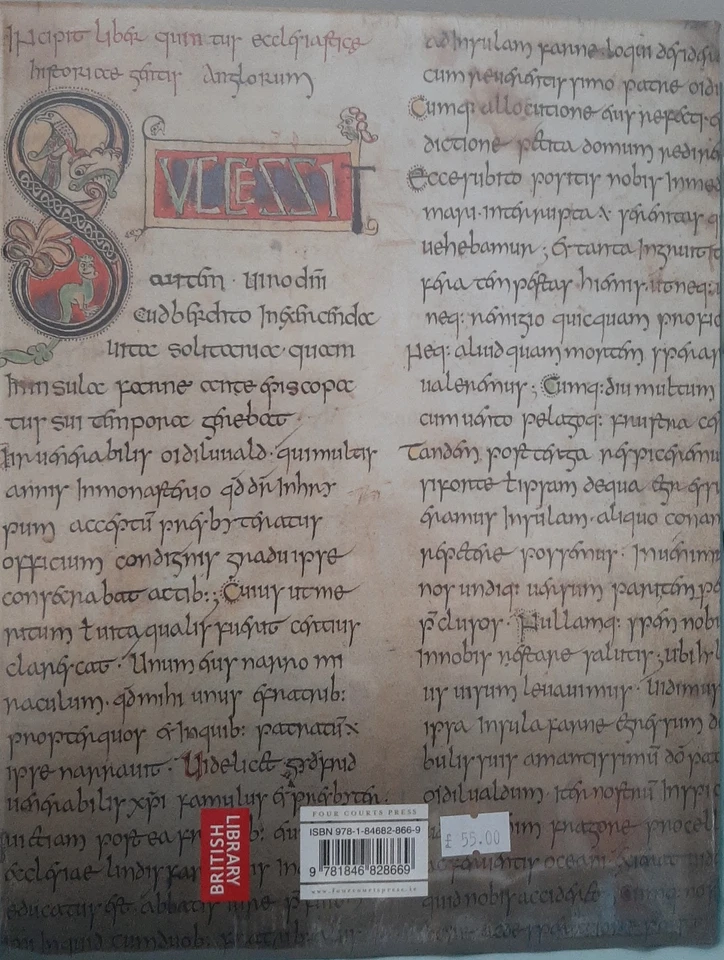 Incipit liber quintus ecclesiastice
historiae gentis Anglorum
SVCCESSIT
autem · Uiro dñi
Cudbercto In exercenda
uita solitaria quam
In insula farne ante episcopa
tus sui tempora gerebat
Uir uenerabilis oidiluuald · qui multis
annis In monasterio qd dr̄ Inhry
pum acceptū presbyteratus
officium condignis gradu ipse
consecrabat actib:; Cuius ut me
ritum ł uita qualis fuerit certius
clarescat · Unum eius narro mi
raculum · qd mihi unus e fratrib:
propter quos et Inquib: patratū
ipse narrauit · Uidelicet gudfrid
uenerabilis xp̄i famulus et presbyter
ecclesiae lindisfar
educatus est · abbatis iure
ad Insulam farne · loqui desidera
cum reuerentissimo patre oidi
Cumq: allocutione eius refecti
dictione petita domum redire
Ecce subito positis nobis In med
mari · Interrupta serenitas
uehebamur ; Et tanta Ingruit
fera tempestas hiemis · ut neq: u
neq: remigio quicquam profic
Neq: aliud quam mortem sperar
ualeremus ; Cumq: diu multum
cum uento pelagoq: frustra ce
Tandem post terga respiceremu
si forte ł ipsam de qua egressi
eramus Insulam · aliquo conam
repetere possemus · Inuenim
nos undiq: uersum pari tem
p̄clusos · Nullamq: spem nobi
In nobis restare salutis ; ubi
us uisum leuauimus · Uidimus
ipsa Insula farne egressum
bulis suis amantissimū dō pat
oidiluualdum · Iter nostrū Inspi
fragore procel
feruentis oceani
quid nobis accideret
BRITISH
LIBRARY
FOUR COURTS PRESS
ISBN 978-1-84682-866-9
9 781846 828669
www.fourcourtspress.ie
£ 55.00